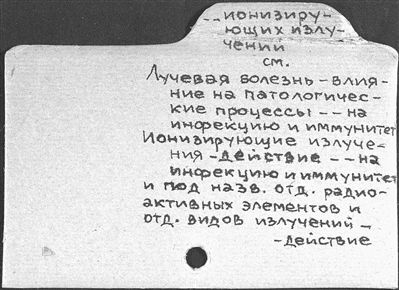 --ионизиру-
ющих излу-
чений
см.
Лучевая болезнь - влия-
ние на патологичес-
кие процессы -- на
инфекцию и иммунитет
Ионизирующие излуче-
ния - действие -- на
инфекцию и иммунитет
и под назв. отд. радио-
активных элементов и
отд. видов излучений -
- действие